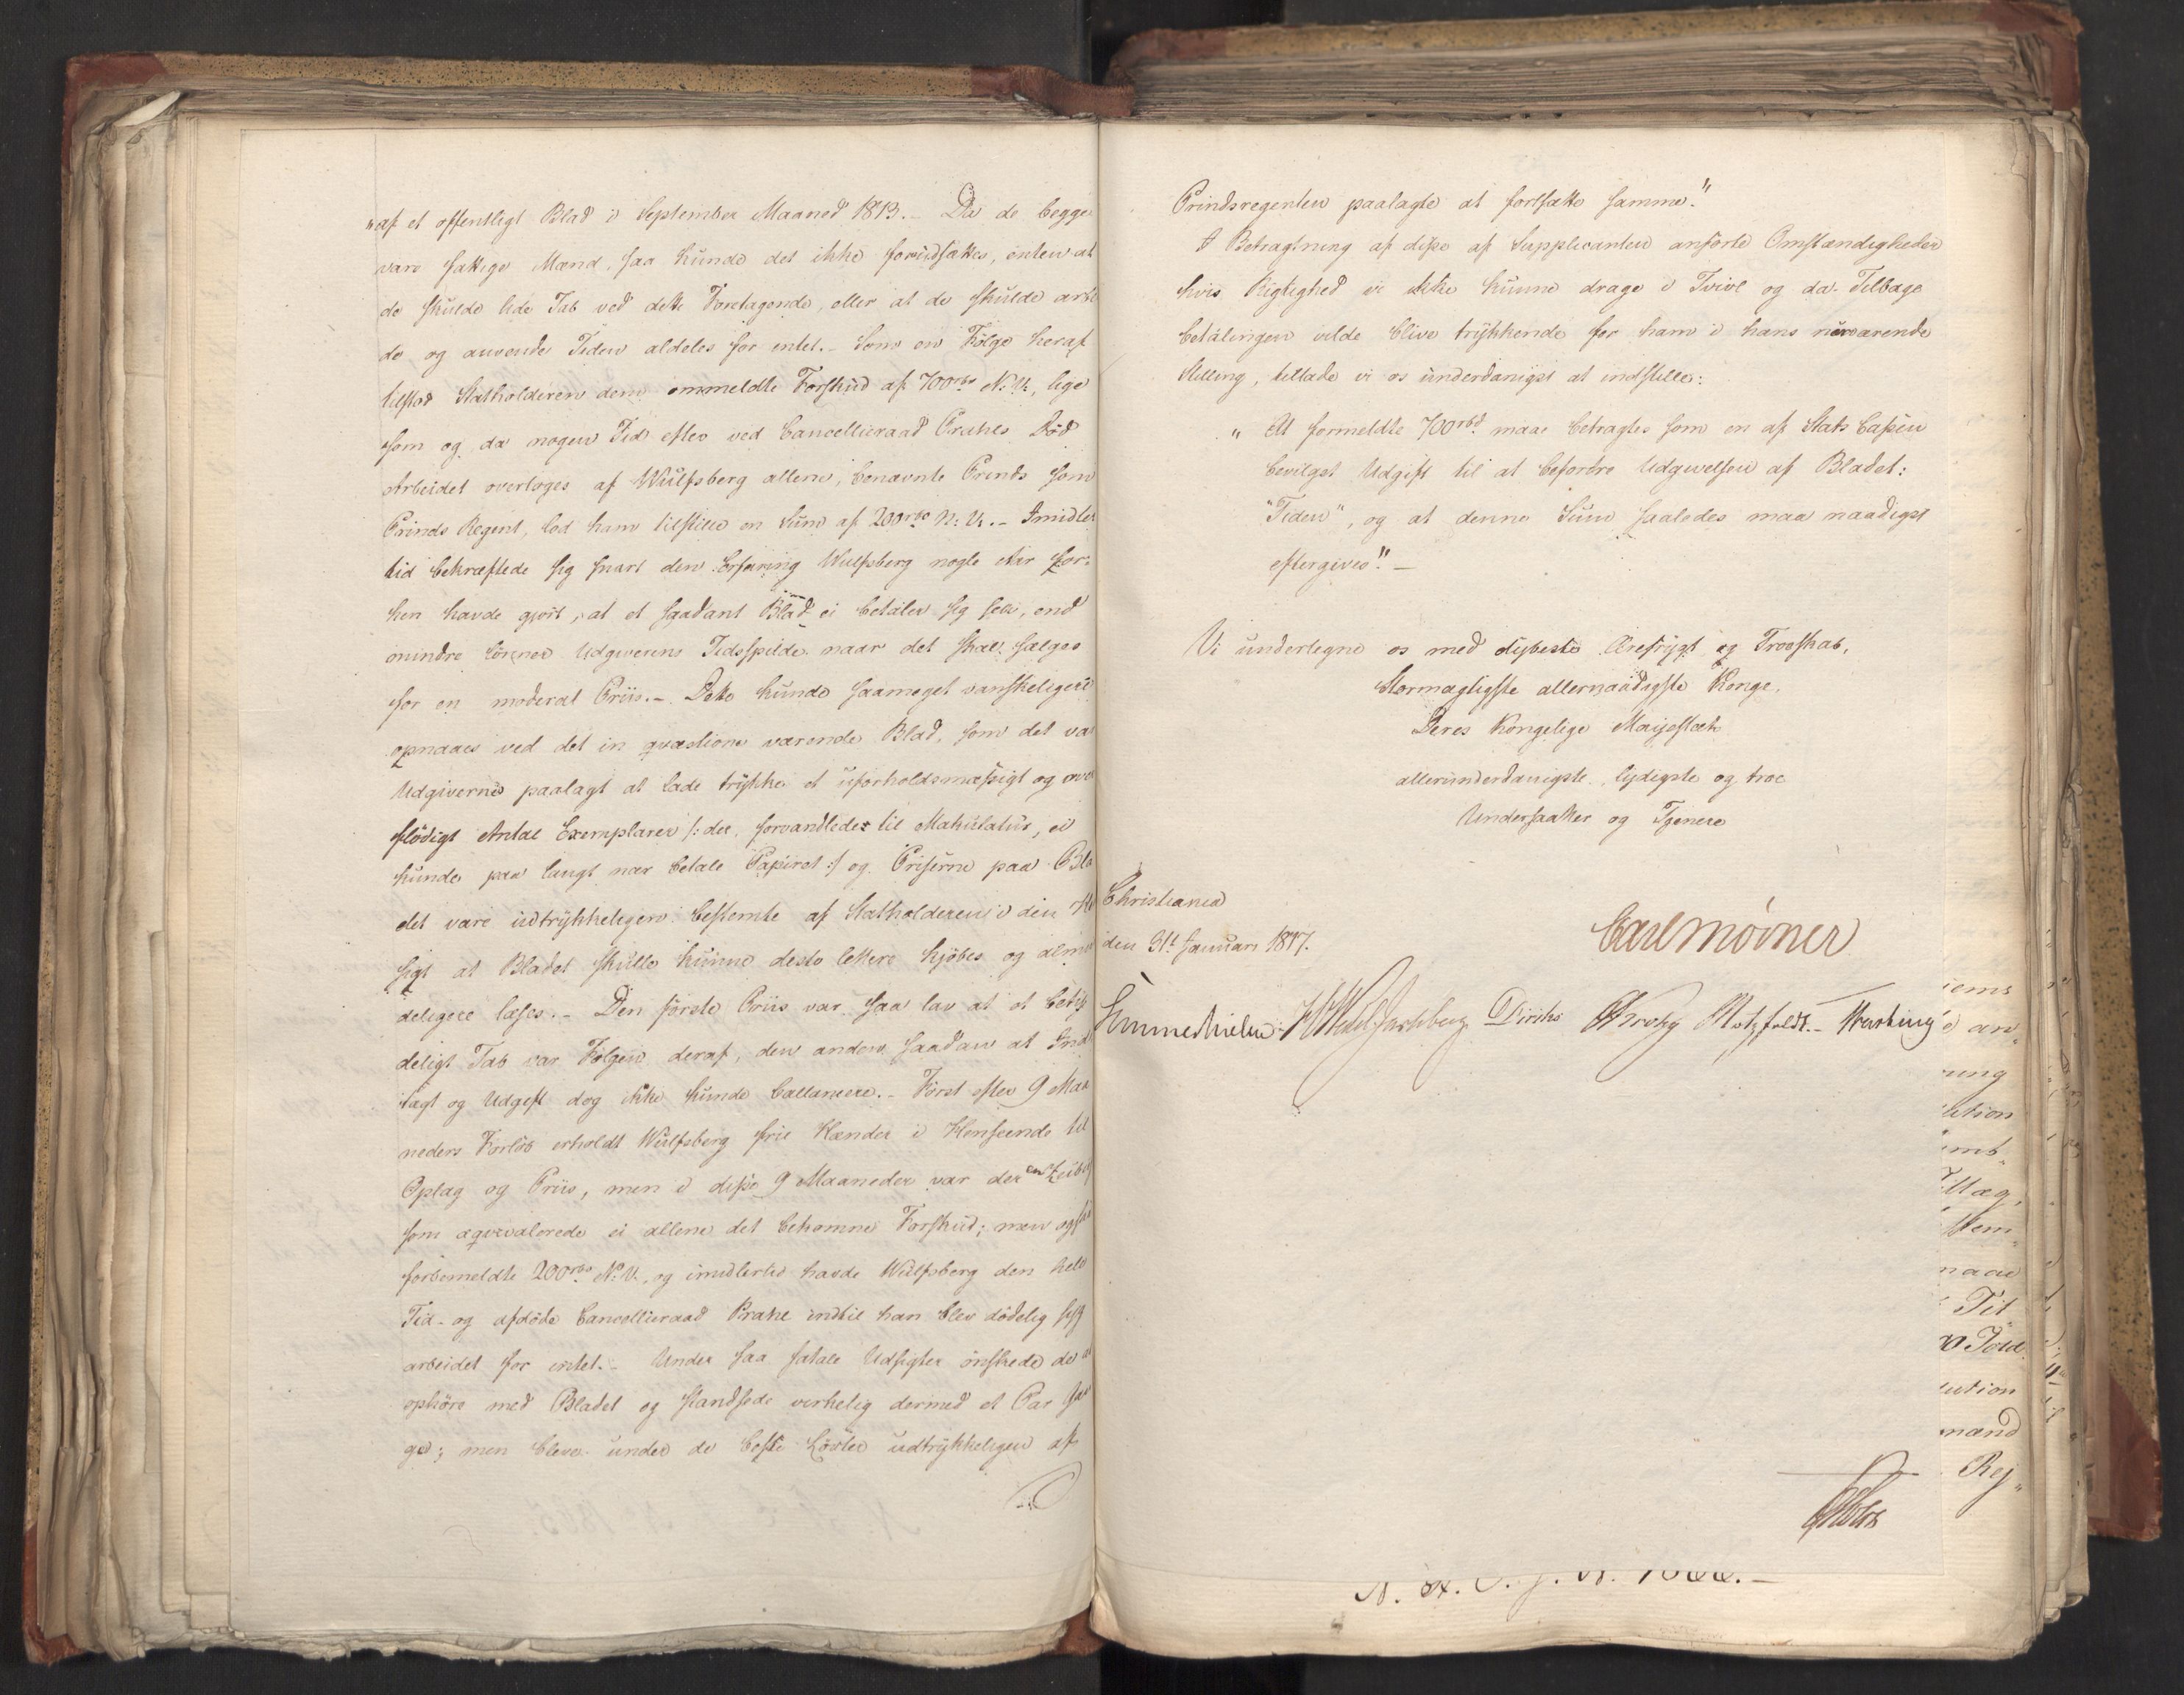 "af et offentligt Blad i September Maaned 1813. – Da de begge
vare fattige Mænd, saa kunde det ikke forudsættes, enten at
de skulde lide Tab ved dette Foretagende, eller at de skulde arbei
de og anvende Tiden aldeles for intet. – Som en Fölge heraf
tilstod Statholderen dem ommeldte Forskud af 700 rbd N. V., lige
som og, da nogen Tid efter ved Cancellieraad Prahls Död
Arbeidet overtoges af Wulfsberg allene, benævnte Prinds som
Prinds Regent, lod ham tilstille en Sum af 200 rbd N. V. – Imidler
tid bekræftede sig snart den Erfaring Wulfsberg nogle Aar for-
hen havde gjort, at et saadant Blad ei betaler sig selv, end
mindre lönner Udgiverens Tidsspilde naar det skal sælges
for en moderat Priis. – Dette kunde saameget vanskeligere
opnaaes ved det in qvæstione værende Blad, som det var
Udgiverne paalagt at lade trykke et uforholdsmæssigt og over
flödigt Antal Exemplarer /: der, forvandlede til Makulatur, ei
kunde paa langt nær betale Papiret :/ og Priserne paa Bla
det vare udtrykkeligen bestemte af Statholderen i den Hen
sigt at Bladet skulle kunne desto lettere kjöbes og almin
deligere læses. – Den förste Priis var saa lav at et betyde
deligt Tab var Fölgen deraf, den anden saadan at Ind
tægt og Udgift dog ikke kunde ballancere. – Först efter 9 Maa
neders Forlöb erholdt Wulfsberg frie Hænder i Henseende til
Oplag og Priis, men i disse 9 Maaneder var der en
som æqvivalerede ei allene det bekomne Forskud; men ogsaa
forbemeldte 200 rbd N. V., og imidlertid havde Wulfsberg den hele
Tid – og afdöde Cancellieraad Prahl indtil han blev dödelig syg
arbeidet for intet. – Under saa fatale Udsigter önskede de at
ophöre med Bladet og standsede virkelig dermed et Par Da
ge; men bleve under de beste Löfter udtrykkeligen af
Prindsregenten paalagte at fortsætte samme."
I Betragtning af disse af Supplicanten anförte Omstændigheder
hvis Rigtighed vi ikke kunne drage i Tvivl og da Tilbage
betalingen vilde blive trykkende for ham i hans nærværende
Stilling, tillade vi os underdanigst at indstille:
" At formeldte 700 rbd maae betragtes som en af Stats Cassen
bevilget Udgift til at befordre Udgivelsen af Bladet:
"Tiden", og at denne Sum saaledes maa naadigst
eftergives". –
Vi undertegne os med dybeste Ærefrygt og Troeskab,
Stormægtigste allernaadigste Konge,
Deres Kongelige Majestæts
allerunderdanigste, lydigste og troe
Undersaatter og Tjenere
Christiania
den 31te Januari 1817.
Carl Mörner
Sommerhielm HWedel Jarlsberg Diriks Krohg Motzfeldt. –
Holst